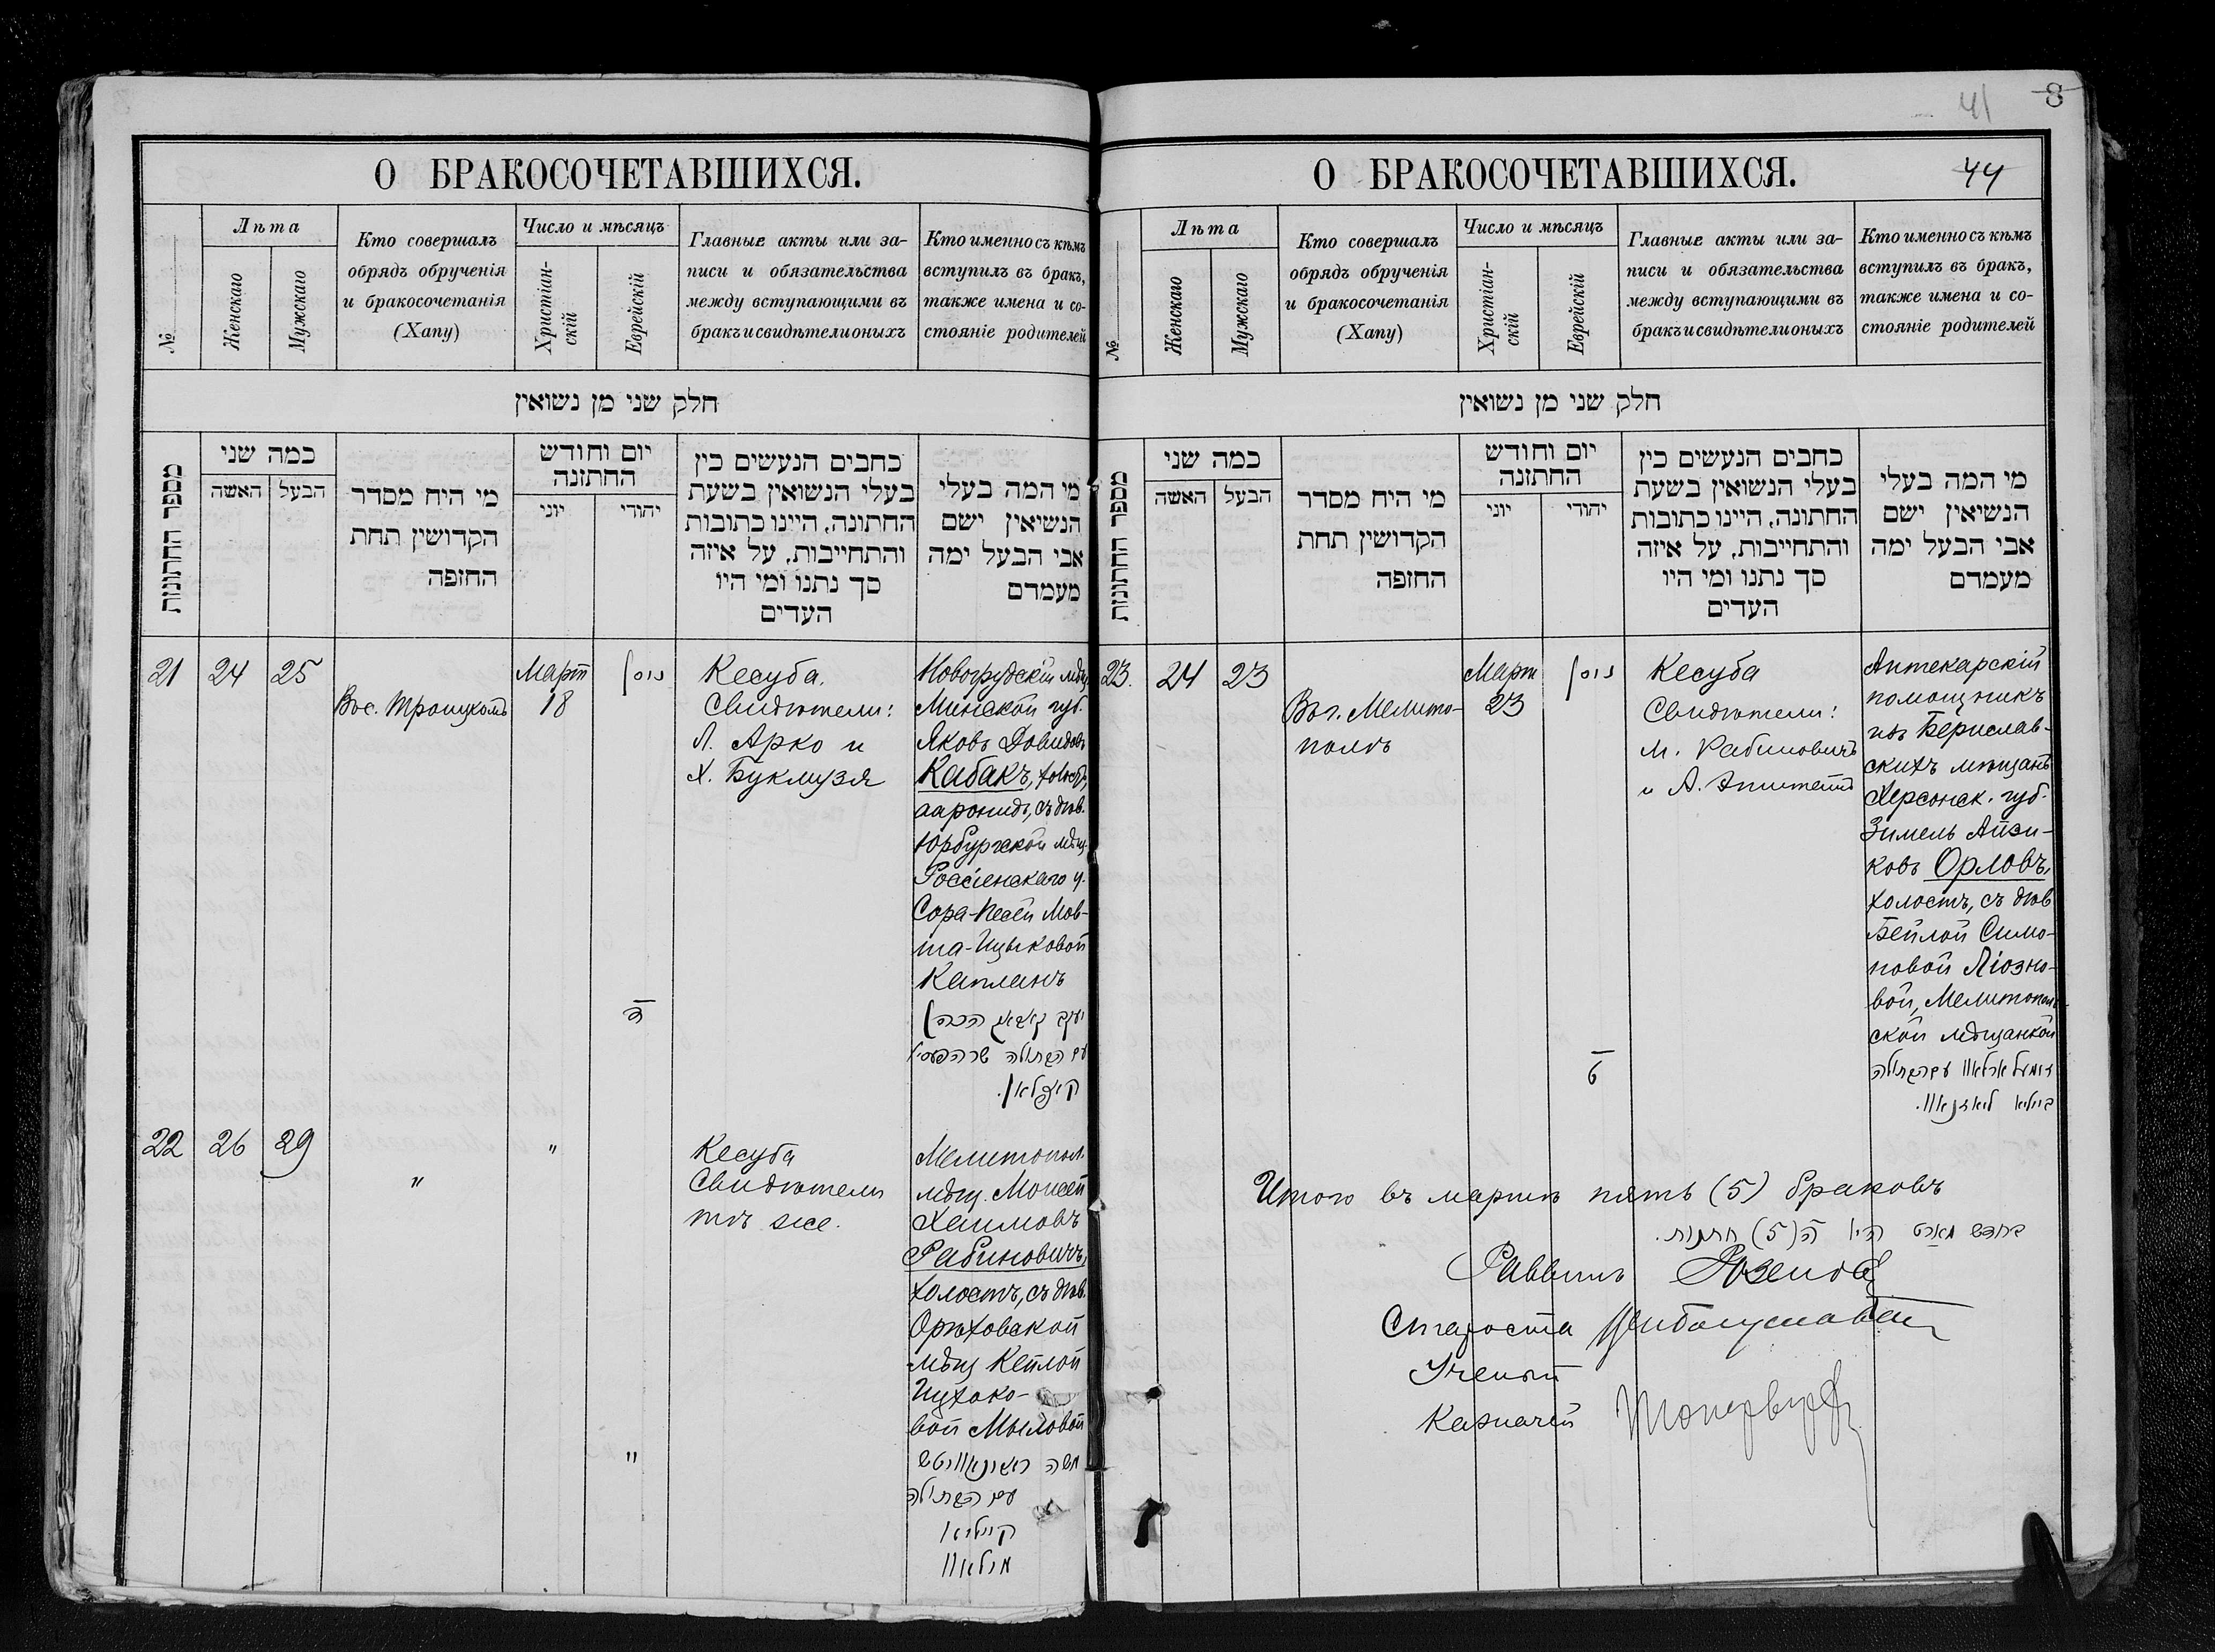 41 8
О БРАКОСОЧЕТАВШИХСЯ.
№
Лѣта
Женскаго
Мужскаго
Кто совершалъ
обрядъ обрученія
и бракосочетанія
(Хапу)
Число и мѣсяцъ
Христіан-
скій
Еврейскій
Главные акты или за-
писи и обязательства
между вступающими въ
бракъ и свидѣтели оныхъ
Кто именно съ кѣмъ
вступилъ въ бракъ,
также имена и со-
стояніе родителей
חלק שני מן נשואין
מספר החתונות
כמה שני
האשה
הבעל
מי היה מסדר
הקדושין תחת
החופה
יום וחודש
החתונה
יוני
יהודי
כתבים הנעשים בין
בעלי הנשואין בשעת
החתונה, היינו כתובות
והתחייבות, על איזה
סך נתנו ומי היו
העדים
מי המה בעלי
הנשיאין ישם
אבי הבעל ימה
מעמדם
21 24 25
Вос. Троицкомъ
Март
18
ניסן
ה
Кесуба.
Свидѣтели:
Л. Арко и
Х. Буклузя
Новогрудскій мѣщ.
Минской губ.
Яковъ Довидовъ
Кабакъ, холостъ,
ааронидъ, съ дѣв.
Юрбургской мѣщ.
Россіенскаго у.
Сора-Песей Мов-
ша-Ицыковой
Капланъ
עם הבתולה
קאפלאן.
22 26 29
"
"
"
Кесуба
Свидѣтели
тѣ же.
Мелитопол.
мѣщ. Моисей
Хаимовъ
Рабиновичъ,
холостъ, съ дѣв.
Орѣховской
мѣщ Кейлой
Ицхоко-
вой Мыловой
משה ראבינאוויטש
עם הבתולה
קיילא
מילאוו
О БРАКОСОЧЕТАВШИХСЯ.
44
№
Лѣта
Женскаго
Мужскаго
Кто совершалъ
обрядъ обрученія
и бракосочетанія
(Хапу)
Число и мѣсяцъ
Христіан-
скій
Еврейскій
Главные акты или за-
писи и обязательства
между вступающими въ
бракъ и свидѣтели оныхъ
Кто именно съ кѣмъ
вступилъ въ бракъ,
также имена и со-
стояніе родителей
חלק שני מן נשואין
מספר החתונות
כמה שני
האשה
הבעל
מי היה מסדר
הקדושין תחת
החופה
יום וחודש
החתונה
יוני
יהודי
כתבים הנעשים בין
בעלי הנשואין בשעת
החתונה, היינו כתובות
והתחייבות, על איזה
סך נתנו ומי היו
העדים
מי המה בעלי
הנשיאין ישם
אבי הבעל ימה
מעמדם
23. 24 23
Въ г. Мелито-
полѣ
Март
23
ניסן
ט
Кесуба
Свидѣтели:
М. Рабиновичъ
и А. Эпштейнъ
Аптекарскій
помощникъ
изъ Берислав-
скихъ мѣщанъ
Херсонск. губ.
Зимель Айзи-
ковъ Орловъ,
холостъ, съ дѣв
Бейлой Симо-
новой Ліозно-
вой, Мелитополь-
ской мѣщанкой
זימעל ארלאוו עם הבתולה
ביילא ליאזנאוו.
Итого въ мартѣ пять (5) браковъ
בחדש מארט היו ה (5) חתונות.
Раввинъ
Староста
Ученый
Казначей